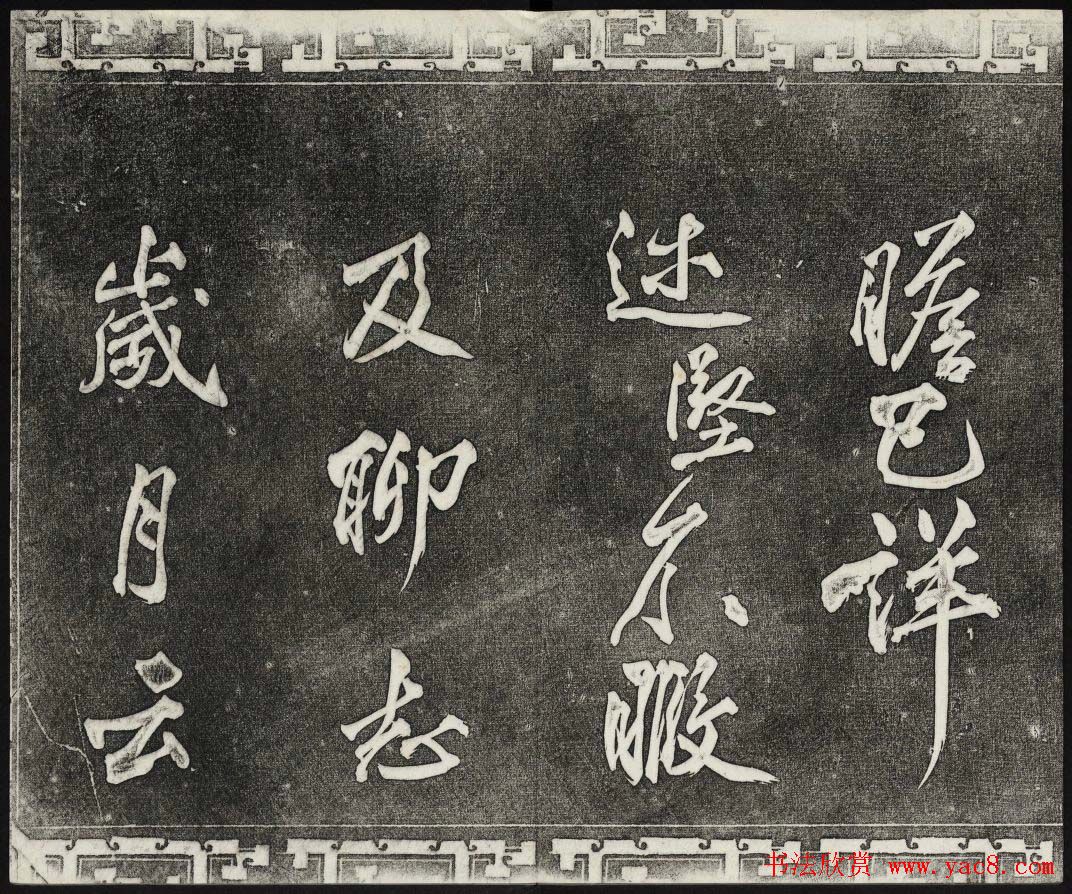 瞻已詳
述堅不暇
及聊志
歲月云
书法欣赏 www.yac8.com